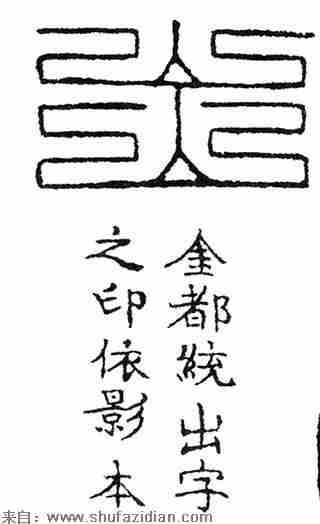 金都統出字
之印依影本
来自：www.shufazidian.com